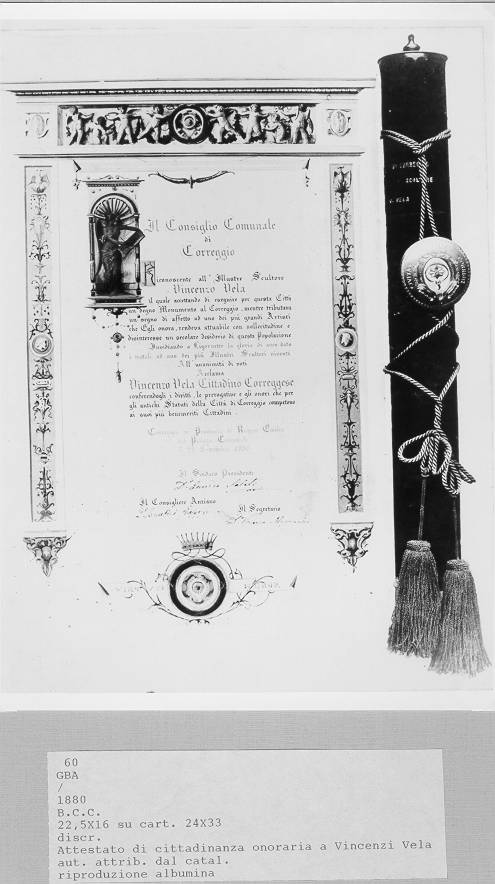 Il Consiglio Comunale
di
Correggio
Riconoscente all' Illustre Scultore
Vincenzo Vela
il quale accettando di eseguire per questa Città
un degno Monumento al Correggio, mentre tributava
un segno di affetto ad uno dei più grandi Artisti
che Egli onora, rendeva attuabile con sollecitudine e
disinteresse un secolare desiderio di questa Popolazione
Invidiando a Ligornetto la gloria di aver dato
i natali ad uno dei più Illustri Scultori viventi
All' unanimità di voti
Acclama
Vincenzo Vela Cittadino Correggese
conferendogli i diritti, le prerogative e gli onori che per
gli antichi Statuti della Città di Correggio competono
ai suoi più benemeriti Cittadini.
Correggio in Provincia di Reggio Emilia
dal Palazzo Comunale
1880
Il Sindaco Presidente
Il Consigliere Anziano
Il Segretario
SCULTORE
VELA
60
GBA
/
1880
B.C.C.
22,5X16 su cart. 24X33
discr.
Attestato di cittadinanza onoraria a Vincenzi Vela
aut. attrib. dal catal.
riproduzione albumina